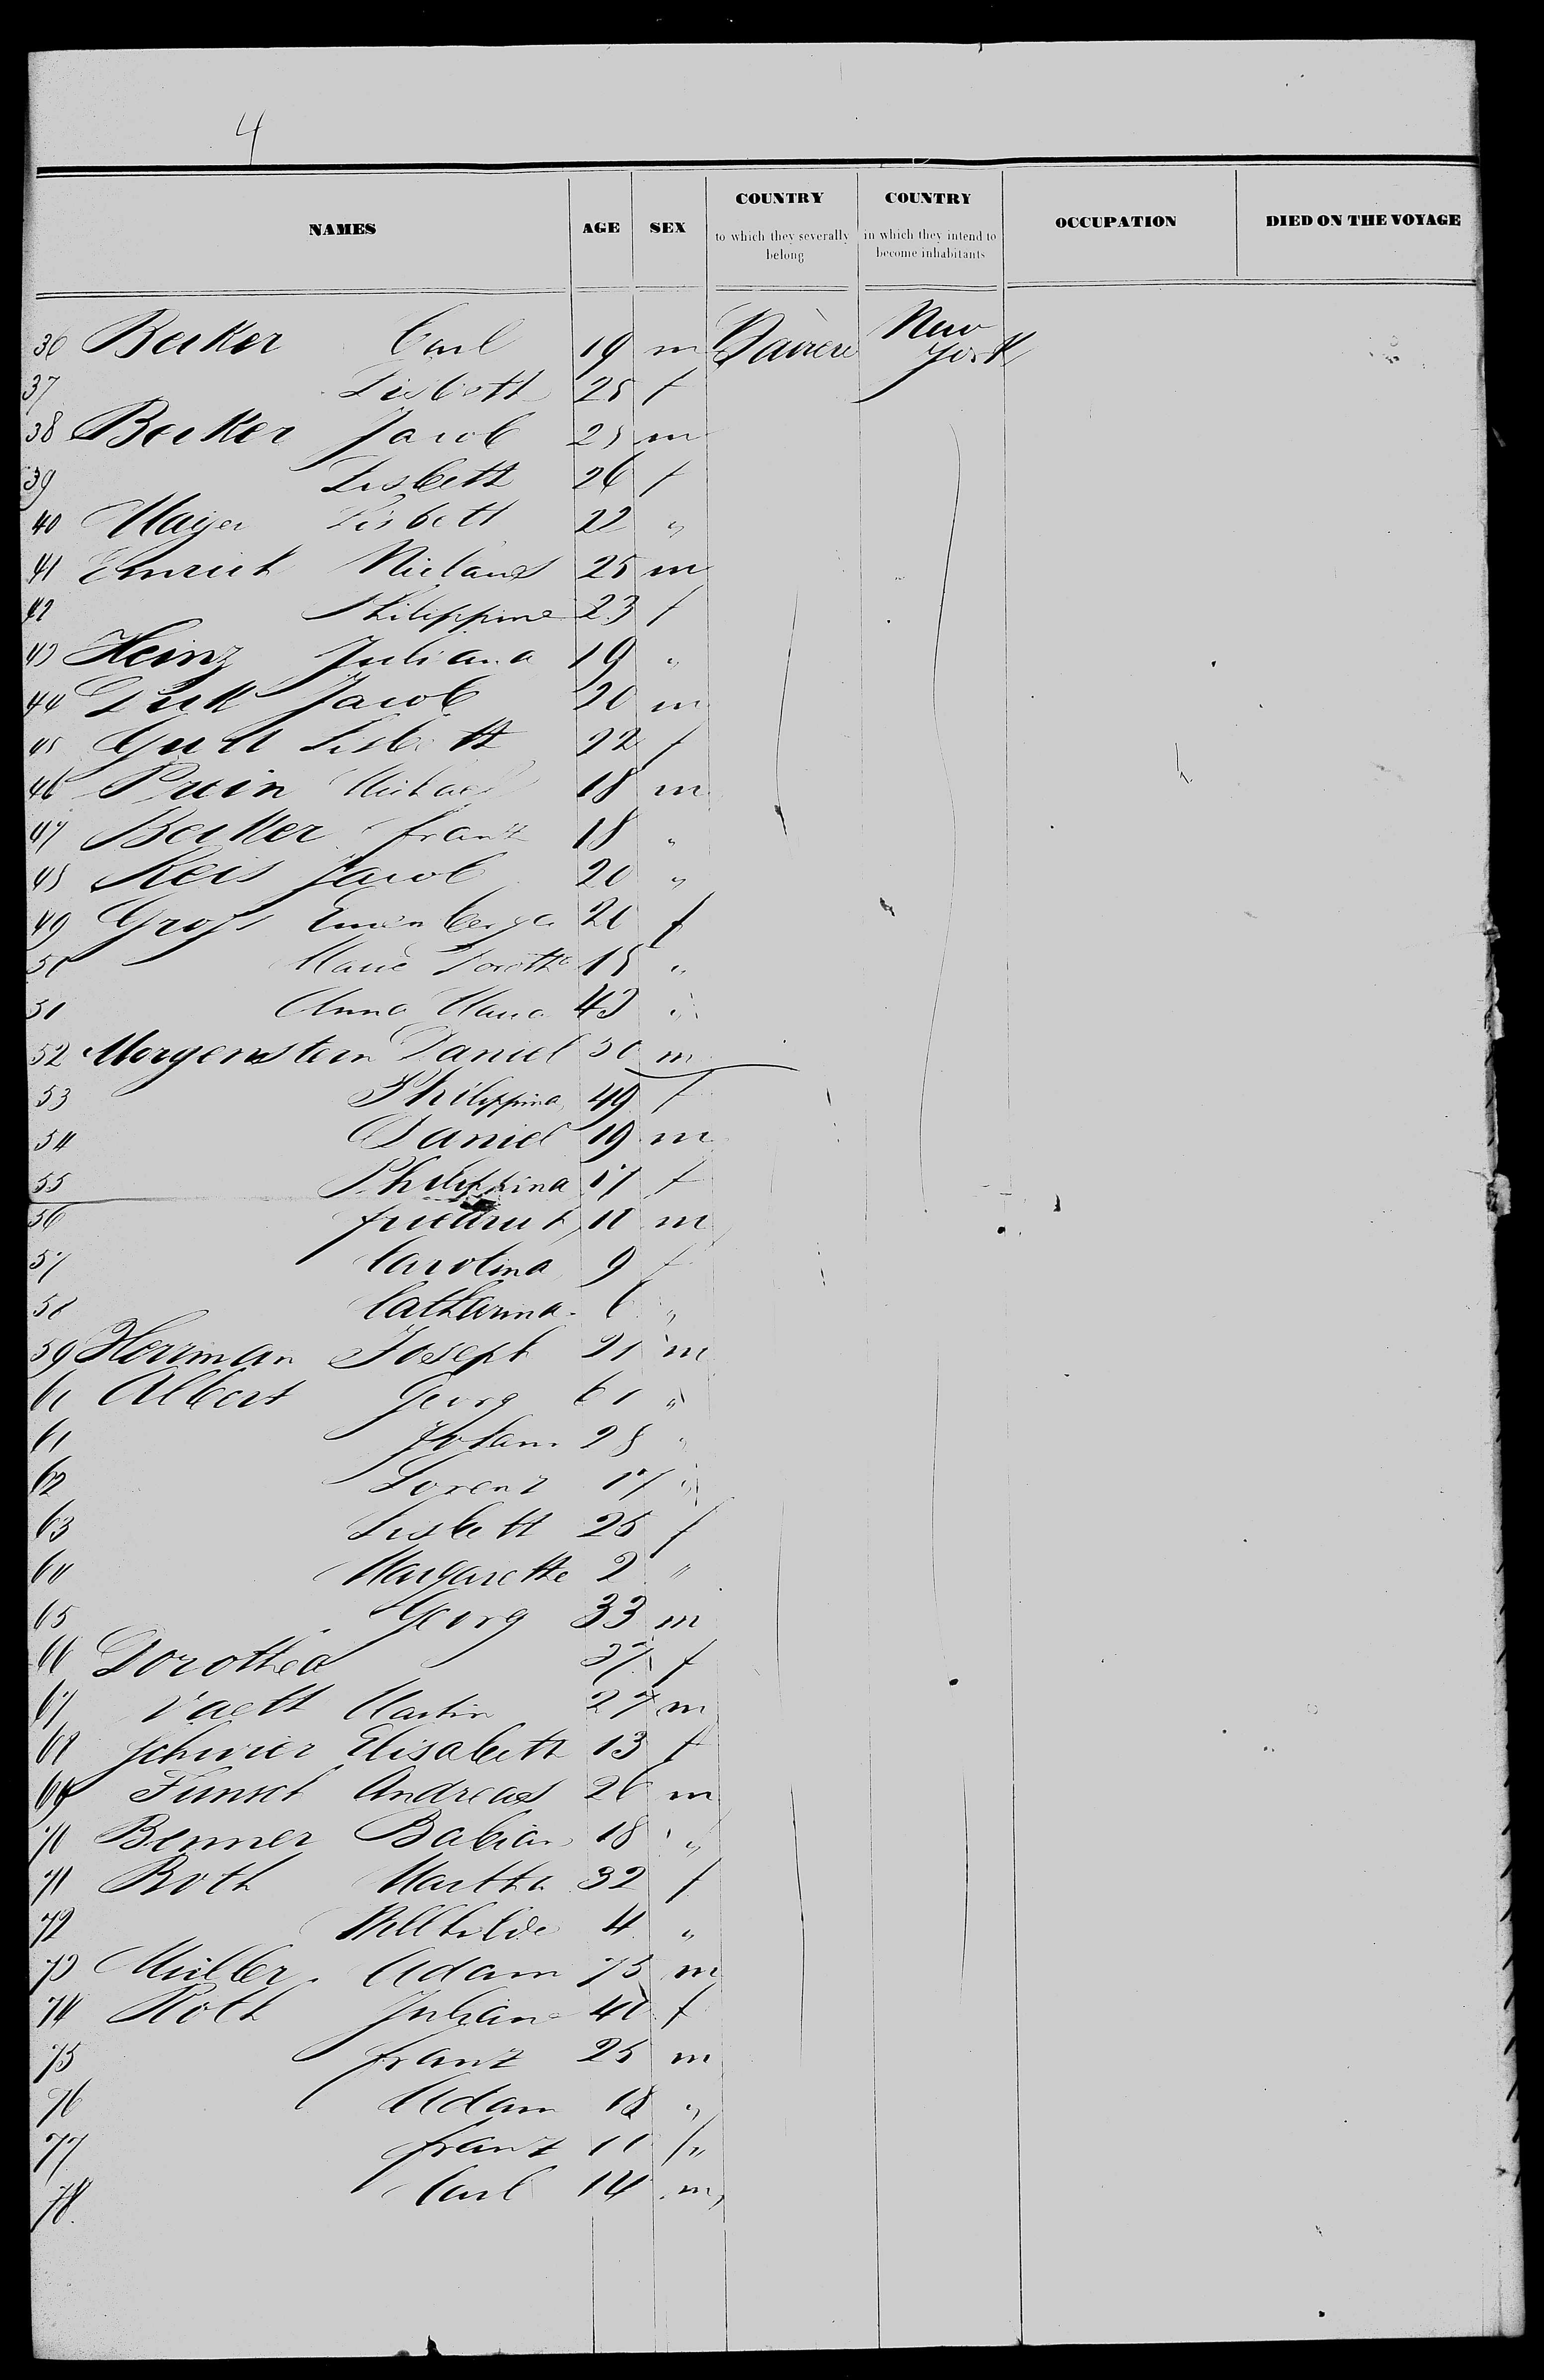 4
NAMES AGE SEX COUNTRY to which they severally belong COUNTRY in which they intend to become inhabitants OCCUPATION DIED ON THE VOYAGE
36 Becker Carl 19 m New York
37 Lisbeth 25 f
38 Becker Jacob 25 m
39 Lisbeth 26 f
40 Mayer Lisbeth 22 "
41 Emrich Niclaus 25 m
42 Philippine 23 f
43 Heinz Juliana 19 "
44 Jacob 20 m
45 Lisbeth 22 f
46 Michael 18 m
47 Becker franz 18 "
48 Reis Jacob 20 "
49 Groß 20 f
50 Marie Doroth 15 "
51 Anna Maria 43 "
52 Morgenstern Daniel 50 m
53 Philippina 49 f
54 Daniel 19 m
55 Philippina 17 f
56 friedrich 11 m
57 Carolina 9 f
58 Catharina 6 "
59 Herrman Joseph 21 m
60 Albert Georg 61 "
61 Johann 28 "
62 Lorenz 17 "
63 Lisbeth 25 f
64 Margarethe 2 "
65 Georg 33 m
66 Dorothea 37 f
67 Martin 27 m
68 Elisabeth 13 f
69 Andreas 26 m
70 Benner 18 "
71 Roth Martha 32 f
72 4 "
73 Müller Adam 75 m
74 Roth Juliana 40 f
75 franz 25 m
76 Adam 18 "
77 franz 11 "
78 Carl 14 m